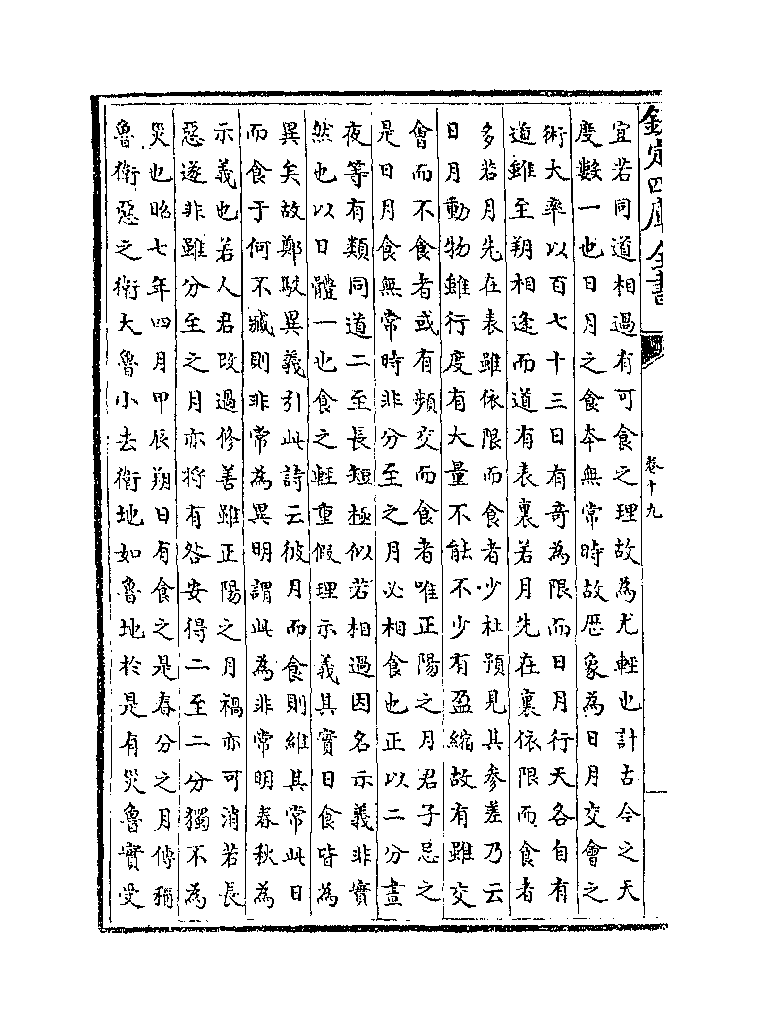 欽定四庫全書
卷十九
宜若同道相過有可食之理故為尤輕也計古今之天
度數一也日月之食本無常時故歴象為日月交會之
術大率以百七十三日有奇為限而日月行天各自有
道雖至朔相逢而道有表裏若月先在裏依限而食者
多若月先在表雖依限而食者少杜預見其參差乃云
日月動物雖行度有大量不能不少有盈縮故有雖交
會而不食者或有頻交而食者唯正陽之月君子忌之
是日月食無常時非分至之月必相食也正以二分晝
夜等有類同道二至長短極似若相過因名示義非實
然也以日體一也食之輕重假理示義其實日食皆為
異矣故鄭駮異義引此詩云彼月而食則維其常此日
而食于何不臧則非常為異明謂此為非常明春秋為
示義也若人君改過修善雖正陽之月禍亦可消若長
惡遂非雖分至之月亦將有咎安得二至二分獨不為
災也昭七年四月甲辰朔日有食之是春分之月傳稱
魯衛惡之衛大魯小去衛地如魯地於是有災魯實受